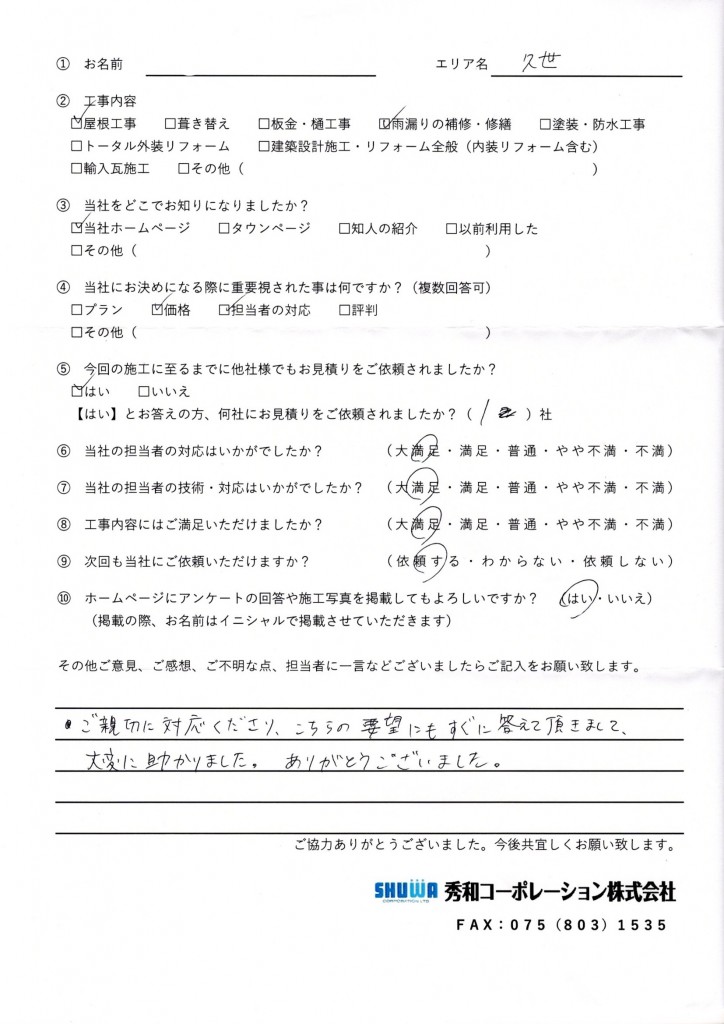 ① お名前 エリア名 久世
② 工事内容
☑屋根工事 □葺き替え □板金・樋工事 ☑雨漏りの補修・修繕 □塗装・防水工事
□トータル外装リフォーム □建築設計施工・リフォーム全般（内装リフォーム含む）
□輸入瓦施工 □その他（ ）
③ 当社をどこでお知りになりましたか？
☑当社ホームページ □タウンページ □知人の紹介 □以前利用した
□その他（ ）
④ 当社にお決めになる際に重要視された事は何ですか？（複数回答可）
□プラン ☑価格 ☑担当者の対応 □評判
□その他（ ）
⑤ 今回の施工に至るまでに他社様でもお見積りをご依頼されましたか？
☑はい □いいえ
【はい】とお答えの方、何社にお見積りをご依頼されましたか？（ 1 ）社
⑥ 当社の担当者の対応はいかがでしたか？ （大満足・満足・普通・やや不満・不満）
⑦ 当社の担当者の技術・対応はいかがでしたか？ （大満足・満足・普通・やや不満・不満）
⑧ 工事内容にはご満足いただけましたか？ （大満足・満足・普通・やや不満・不満）
⑨ 次回も当社にご依頼いただけますか？ （依頼する・わからない・依頼しない）
⑩ ホームページにアンケートの回答や施工写真を掲載してもよろしいですか？ （はい・いいえ）
（掲載の際、お名前はイニシャルで掲載させていただきます）
その他ご意見、ご感想、ご不明な点、担当者に一言などございましたらご記入をお願い致します。
・ご親切に対応くださり、こちらの要望にもすぐに答えて頂きまして、
大変に助かりました。 ありがとうございました。
ご協力ありがとうございました。今後共宜しくお願い致します。
SHUWA 秀和コーポレーション株式会社
CORPORATION LTD.
FAX：075（803）1535